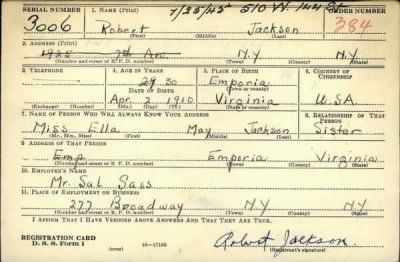 SERIAL NUMBER 1. NAME (Print) 7/25/45 510 W. 144 St ORDER NUMBER
3006 Robert Jackson 384
(First) (Middle) (Last)
2. ADDRESS (Print)
1925 7th Ave. N.Y N.Y.
(Number and street or R. F. D. number) (Town) (County) (State)
3. TELEPHONE 4. AGE IN YEARS 5. PLACE OF BIRTH 6. COUNTRY OF CITIZENSHIP
29 30 Emporia
DATE OF BIRTH (Town or county)
Apr. 2 1910 Virginia U.S.A
(Exchange) (Number) (Mo.) (Day) (Yr.) (State or country)
7. NAME OF PERSON WHO WILL ALWAYS KNOW YOUR ADDRESS 8. RELATIONSHIP OF THAT PERSON
Miss Ella May Jackson Sister
(Mr., Mrs., Miss) (First) (Middle) (Last)
9. ADDRESS OF THAT PERSON
Emp Emporia Virginia
(Number and street or R. F. D. number) (Town) (County) (State)
10. EMPLOYER'S NAME
Mr. Sal Sass
11. PLACE OF EMPLOYMENT OR BUSINESS
277 Broadway N.Y N.Y.
(Number and street or R. F. D. number) (Town) (County) (State)
I AFFIRM THAT I HAVE VERIFIED ABOVE ANSWERS AND THAT THEY ARE TRUE.
REGISTRATION CARD
D. S. S. Form 1 (over) 16—17105 Robert Jackson
(Registrant's signature)